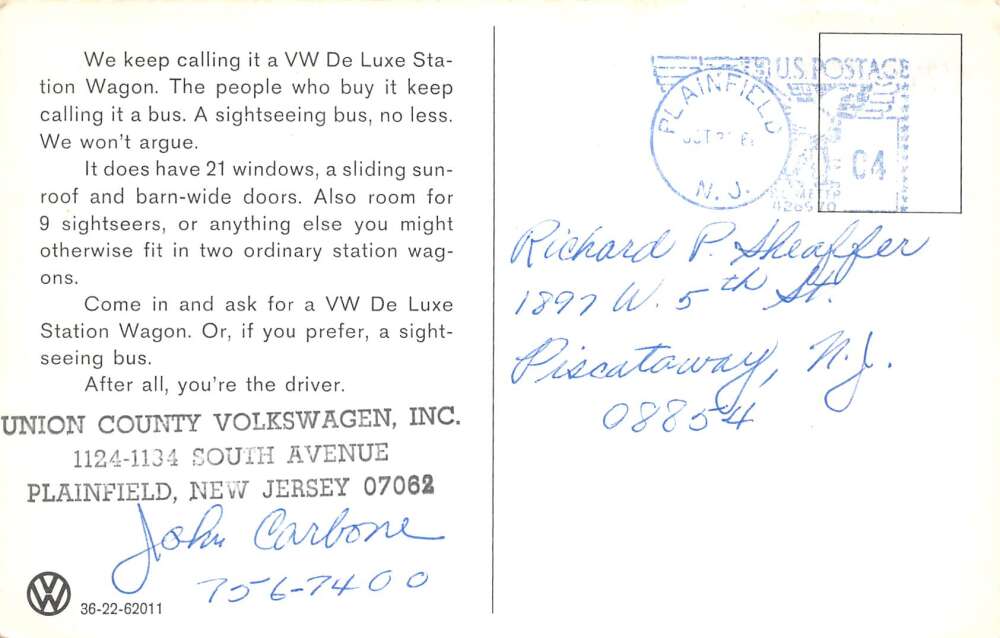 We keep calling it a VW De Luxe Sta-
tion Wagon. The people who buy it keep
calling it a bus. A sightseeing bus, no less.
We won't argue.
It does have 21 windows, a sliding sun-
roof and barn-wide doors. Also room for
9 sightseers, or anything else you might
otherwise fit in two ordinary station wag-
ons.
Come in and ask for a VW De Luxe
Station Wagon. Or, if you prefer, a sight-
seeing bus.
After all, you're the driver.
UNION COUNTY VOLKSWAGEN, INC.
1124-1134 SOUTH AVENUE
PLAINFIELD, NEW JERSEY 07062
John Carbone
756-7400
VW
36-22-62011
U.S. POSTAGE
PLAINFIELD
N. J.
04
Richard P. Sheaffer
1897 W. 5th St.
Piscataway, N.J.
08854